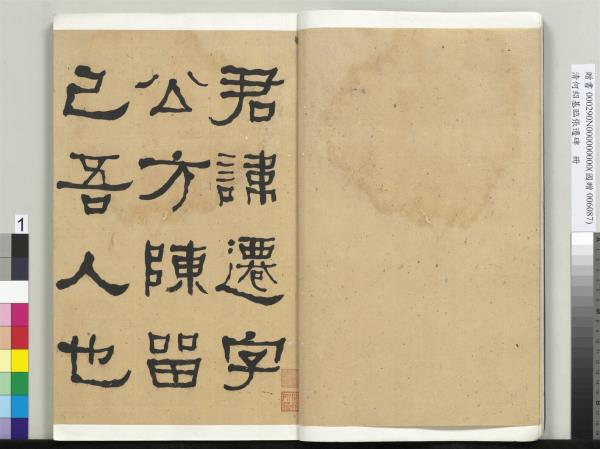 君諱遷字
公方陳留
己吾人也
贈書 000290N000000000(國贈 006087)
清何紹基臨張遷碑 冊
1